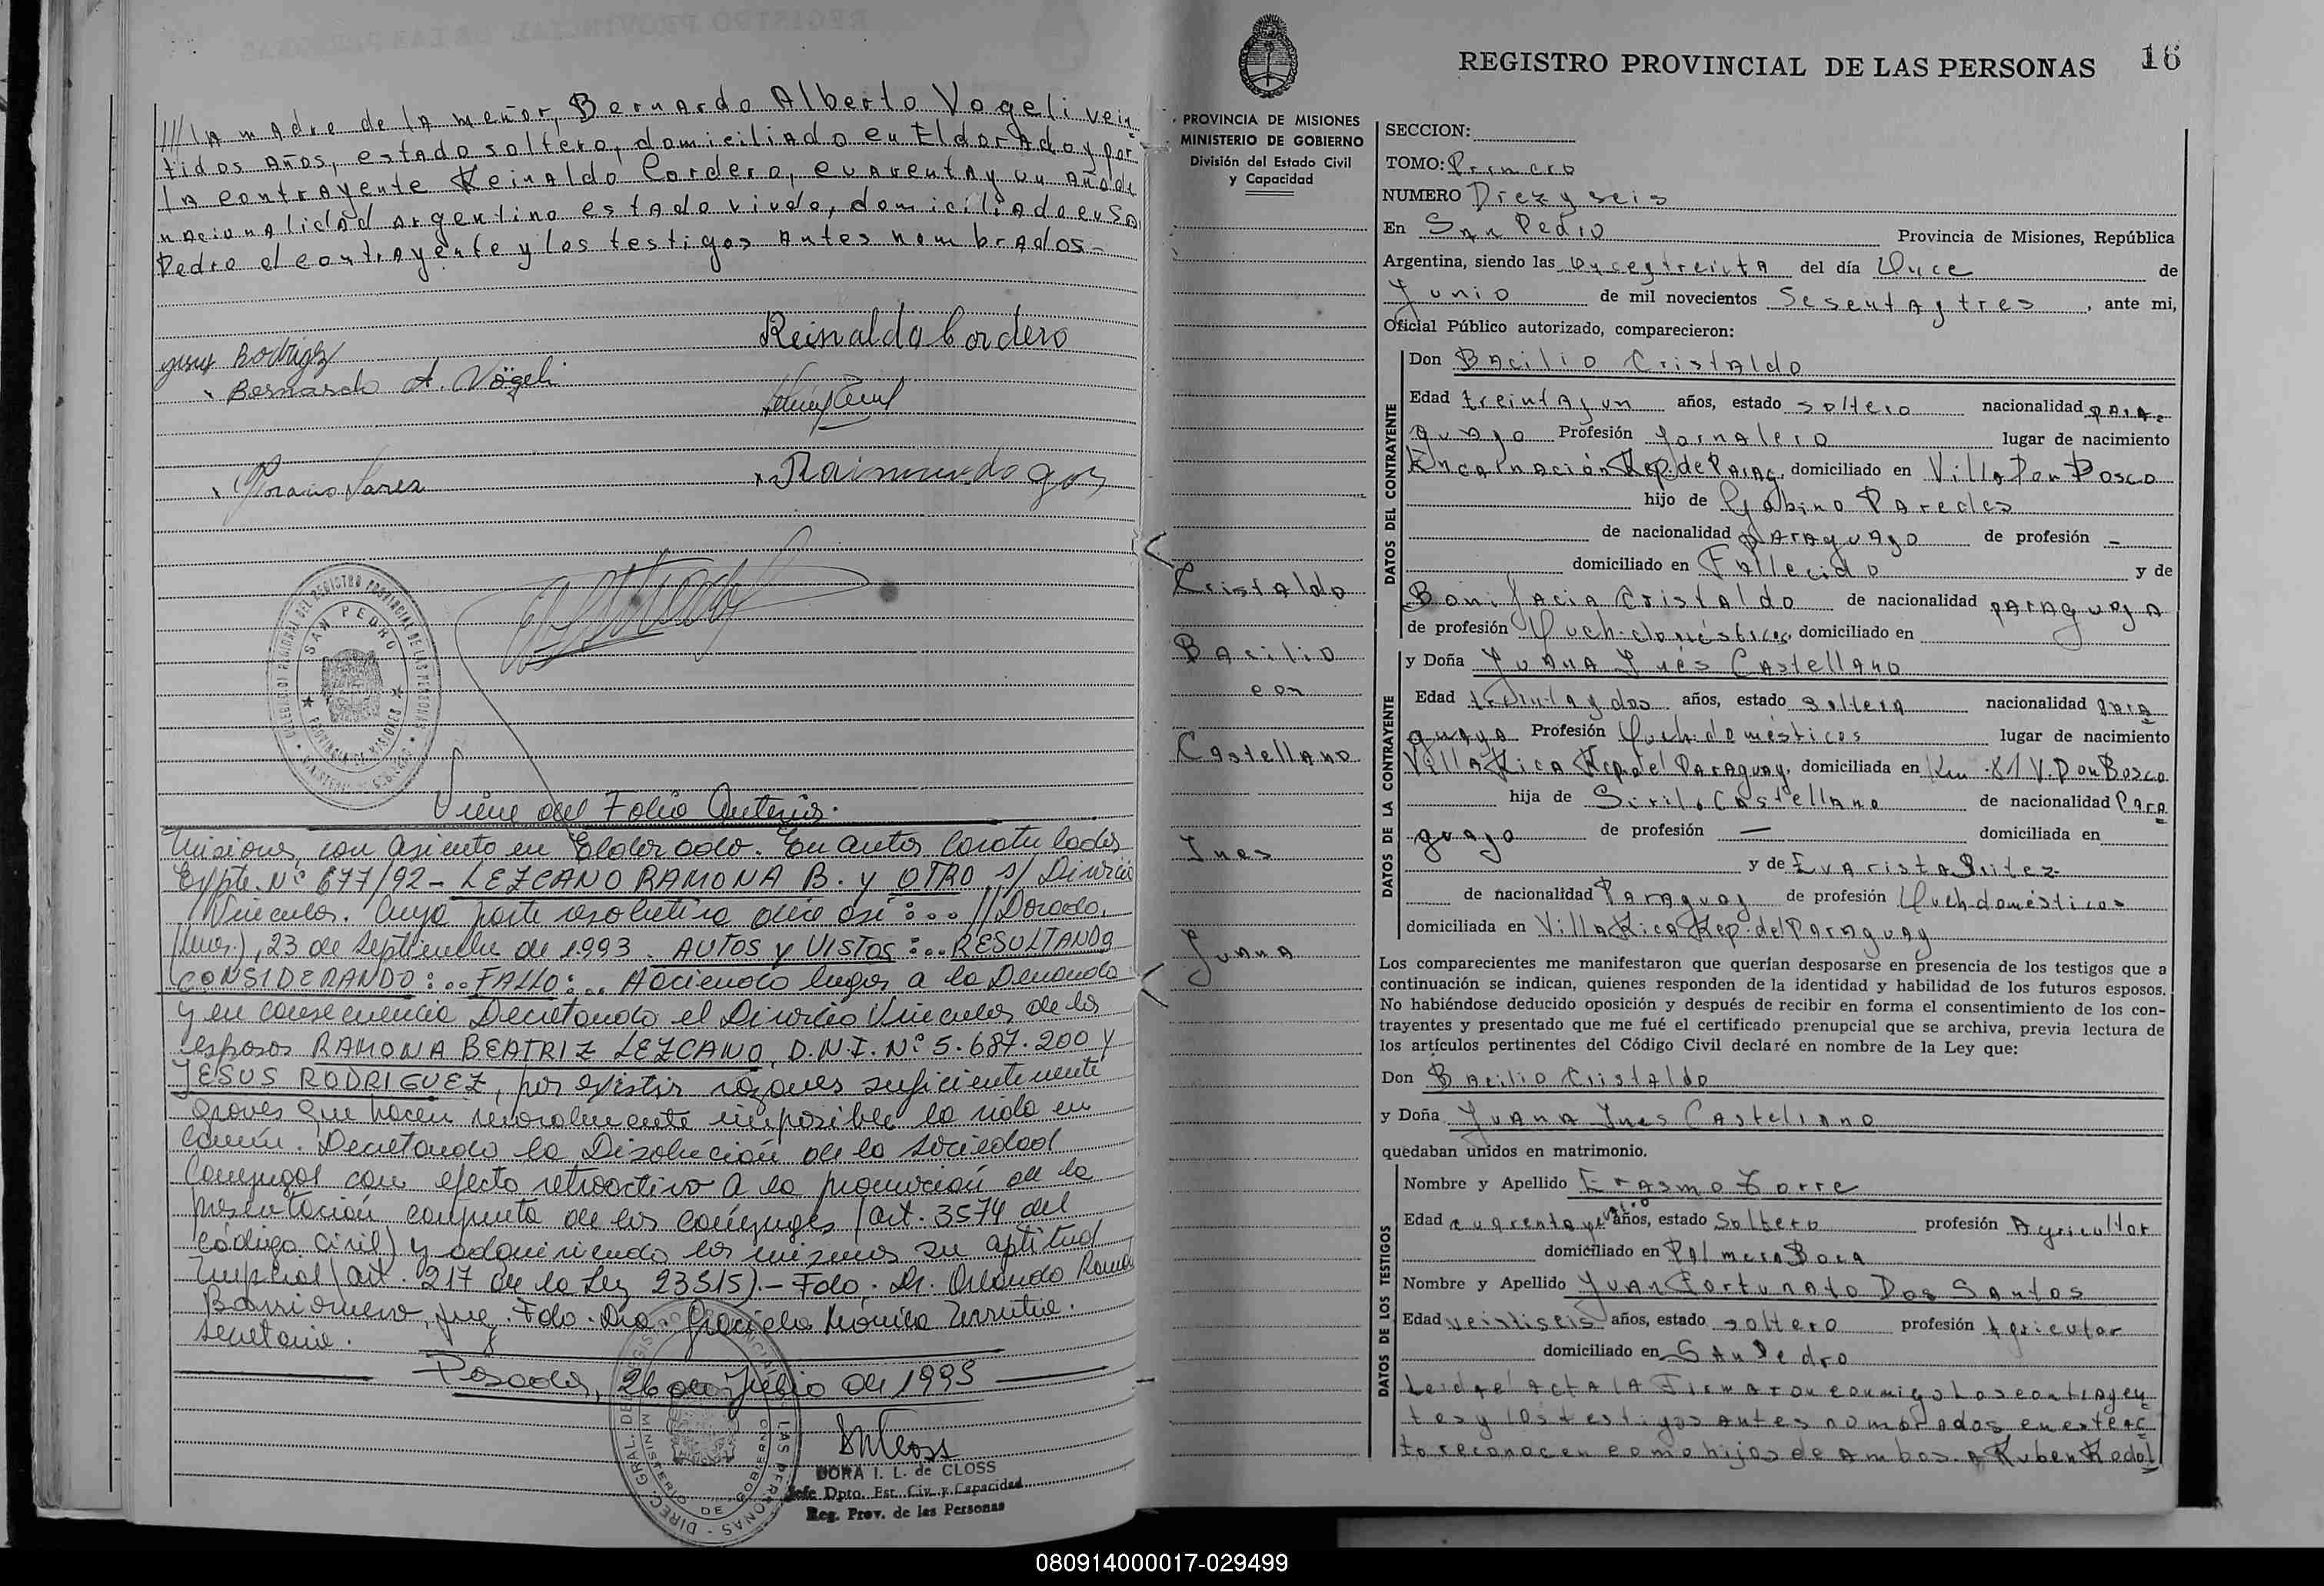 /// la madre de la menor, Bernardo Alberto Vogeli vein
tidos años, estado soltero, domiciliado en Eldorado y por
la contrayente Reinaldo Cordero, cuarenta y un año de
nacionalidad argentino estado viudo, domiciliado en Sa
Pedro el contrayente y los testigos antes nombrados-
Reinaldo Cordero
Jesus Rodriguez
Bernardo A. Vögeli
Horacio Nares
Raimundo
DELEGACION REGIONAL DEL REGISTRO PROVINCIAL DE LAS PERSONAS
SAN PEDRO
PROVINCIA DE MISIONES
Viene del Folio Anterior.
Misiones, con asiento en Eldorado. En autos caratulados
Expte. Nº 677/92 - LEZCANO RAMONA B. y OTRO s/ Divorcio
Vincular. Cuya parte resolutiva dice así:... //Dorado,
(Mnes.), 23 de Septiembre de 1.993. AUTOS y VISTOS:... RESULTANDO
CONSIDERANDO:... FALLO:... Haciendo lugar a la Demanda
y en consecuencia Decretando el Divorcio Vincular de los
esposos RAMONA BEATRIZ LEZCANO, D.N.I. Nº 5.687.200 y
JESUS RODRIGUEZ, por existir razones suficientemente
graves que hacen moralmente imposible la vida en
común. Decretando la Disolución de la Sociedad
Conyugal con efecto retroactivo a la promoción de la
presentación conjunta de los cónyuges (art. 3574 del
Código Civil) y adquiriendo los mismos su aptitud
nupcial (art. 217 de la Ley 23515).- Fdo. Dr. Orlando Ramón
Barrionuevo, juez. Fdo. Dra. Graciela Mónica Urrutia.
secretaria.
Posadas, 26 de Julio de 1995
DORA I. L. de CLOSS
Jefe Dpto. Est. Civ. y Capacidad
Reg. Prov. de las Personas
REGISTRO PROVINCIAL DE LAS PERSONAS
16
PROVINCIA DE MISIONES
MINISTERIO DE GOBIERNO
División del Estado Civil
y Capacidad
Cristaldo
Bacilio
con
Castellano
Ines
Juana
SECCION:
TOMO: Primero
NUMERO Diez y seis
En San Pedro Provincia de Misiones, República
Argentina, siendo las once y treinta del día Once de
Junio de mil novecientos Sesenta y tres, ante mi,
Oficial Público autorizado, comparecieron:
DATOS DEL CONTRAYENTE
Don Bacilio Cristaldo
Edad treinta y un años, estado soltero nacionalidad para-
guayo Profesión Jornalero lugar de nacimiento
Encarnación Rep. de Parag. domiciliado en Villa Don Bosco
hijo de Gabino Paredes
de nacionalidad paraguayo de profesión -
domiciliado en Fallecido y de
Bonifacia Cristaldo de nacionalidad paraguaya
de profesión Queh. domésticos, domiciliado en
DATOS DE LA CONTRAYENTE
y Doña Juana Ynés Castellano
Edad treinta y dos años, estado soltera nacionalidad para
guaya Profesión Queh. domésticos lugar de nacimiento
Villa Rica Rep. del Paraguay, domiciliada en Km. 81 V. Don Bosco
hija de Sirilo Castellano de nacionalidad Para
guayo de profesión — domiciliada en
y de Evarista Benitez
de nacionalidad Paraguay de profesión Queh domésticos
domiciliada en Villa Rica Rep. del Paraguay
Los comparecientes me manifestaron que querían desposarse en presencia de los testigos que a
continuación se indican, quienes responden de la identidad y habilidad de los futuros esposos.
No habiéndose deducido oposición y después de recibir en forma el consentimiento de los con-
trayentes y presentado que me fué el certificado prenupcial que se archiva, previa lectura de
los artículos pertinentes del Código Civil declaré en nombre de la Ley que:
Don Bacilio Cristaldo
y Doña Juana Ynes Castellano
quedaban unidos en matrimonio.
DATOS DE LOS TESTIGOS
Nombre y Apellido Erasmo Torre
Edad cuarenta y cuatro años, estado Soltero profesión Agricultor
domiciliado en Palmera Boca
Nombre y Apellido Juan Fortunato Dos Santos
Edad veintiseis años, estado soltero profesión Agricultor
domiciliado en San Pedro
Leida el acta la firmaron conmigo los contrayen
tes y los testigos antes nombrados en este ac
to reconocen como hijos de ambos a Ruben Rodol
080914000017-029499